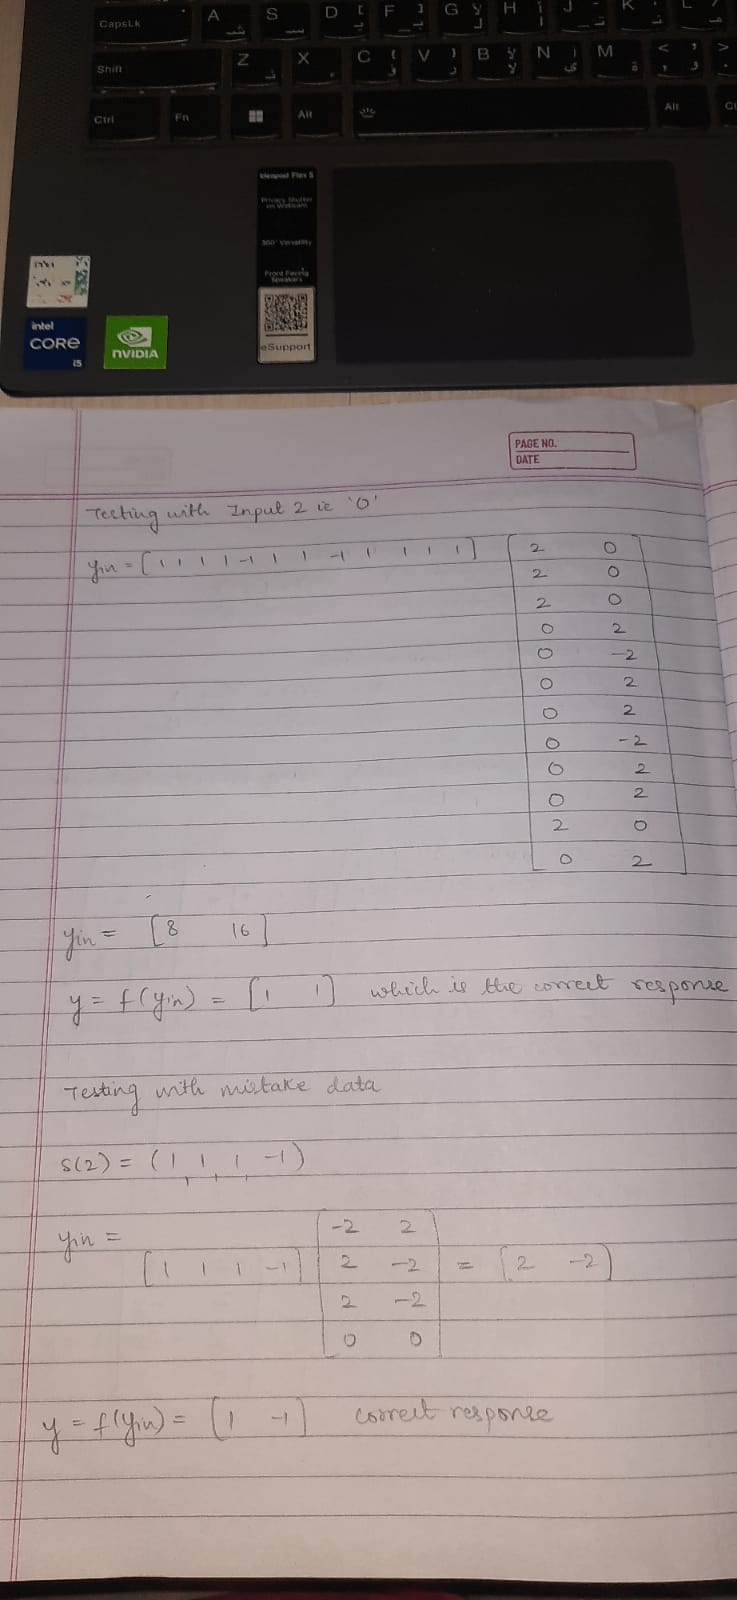 CapsLk A S D F G H J K L
Shift Z X C V B N M < >
Ctrl Fn Alt Alt
ideapad Flex 5
Privacy Shutter
on Webcam
360° Versatility
Front Facing
Speakers
eSupport
intel
CORE
i5
NVIDIA
PAGE NO.
DATE
Testing with Input 2 ie 'O'
yin = [1 1 1 1 -1 1 1 -1 1 1 1 1 1] 2 0
2 0
2 0
0 2
0 -2
0 2
0 2
0 -2
0 2
0 2
2 0
0 2
yin = [8 16]
y = f(yin) = [1 1] which is the correct response
Testing with mistake data
S(2) = (1, 1, 1 -1)
yin =
-2 2
[1 1 1 -1] 2 -2 = [2 -2]
2 -2
0 0
y = f(yin) = [1 -1] correct response